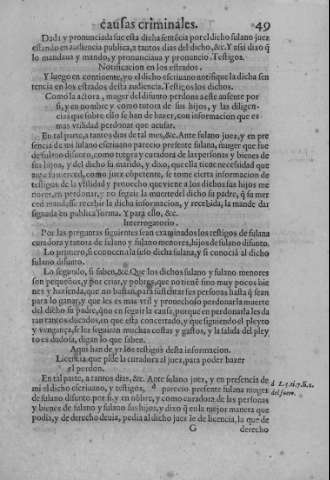 causas criminales. 49
Dada y pronunciada fue esta dicha sentēcia por el dicho fulano juez
estando en audiencia publica, a tantos dias del dicho, &c. Y assi dixo q̃
lo mandaua y mando, y pronunciaua y pronuncio. Testigos.
Notificacion en los estrados.
Y luego en continente, yo el dicho escriuano notifique la dicha sen
tencia en los estrados desta audiencia. Testigos los dichos.
Como la actora, muger del difunto perdona a este ausente por
si, y en nombre y como tutora de sus hijos, y las diligen-
cias que sobre ello se han de hazer, con informacion que es
mas vtilidad perdonar que acusar.
En tal parte, a tantos dias de tal mes, &c. Ante fulano juez, y en pre
sencia de mi fulano escriuano parecio presente fulana, muger que fue
de fulano difunto, como tutora y curadora de las personas y bienes de
sus hijos, y del dicho su marido, y dixo, que ella tiene necessidad que
su merced, como juez cōpetente, se tome cierta informacion de
testigos de la vtilidad y prouecho que viene a los dichos sus hijos me
nores, en perdonar, y no seguir la muerte del dicho su padre, q̃ su mer
ced mandasse recebir la dicha informacion, y recebida, la mande dar
signada en publica forma. Y para ello, &c.
Interrogatorio.
Por las preguntas siguientes sean examinados los testigos de fulana
curadora y tutora de fulano y fulano menores, hijos de fulano difunto.
Lo primero, si conocen a la fulo dicha fulana, y si conociā al dicho
fulano difunto.
Lo segundo, si saben, &c. Que los dichos fulano y fulano menores
son pequeños, y por criar, y pobres, que no tienē sino muy pocos bie
nes y hazienda, que no bastan para sustentar sus personas hasta q̃ sean
para lo ganar, y que les es mas vtil y prouechoso perdonar la muerte
del dicho su padre, q̃ no en seguir la causa, porque en perdonarla les da
tantos ducados, en que esta concertado, y que siguiendo el pleyto
y vengança, se les seguirian muchas costas y gastos, y la salida del pley
to es dudosa, digan lo que saben.
Aqui han de yr los testigos desta informacion.
Licencia que pide la curadora al juez, para poder hazer
el perdon.
En tal parte, a tantos dias, &c. Ante fulano juez, y en presencia de
mi el dicho escriuano, y testigos, parecio presente fulana muger
de fulano difunto por si, y en nōbre, y como curadora de las personas
y bienes de fulano y fulano sus hijos, y dixo q̃ en la mejor manera que
podia, y de derecho deuia, pedia al dicho juez le de licencia, la que de
G derecho